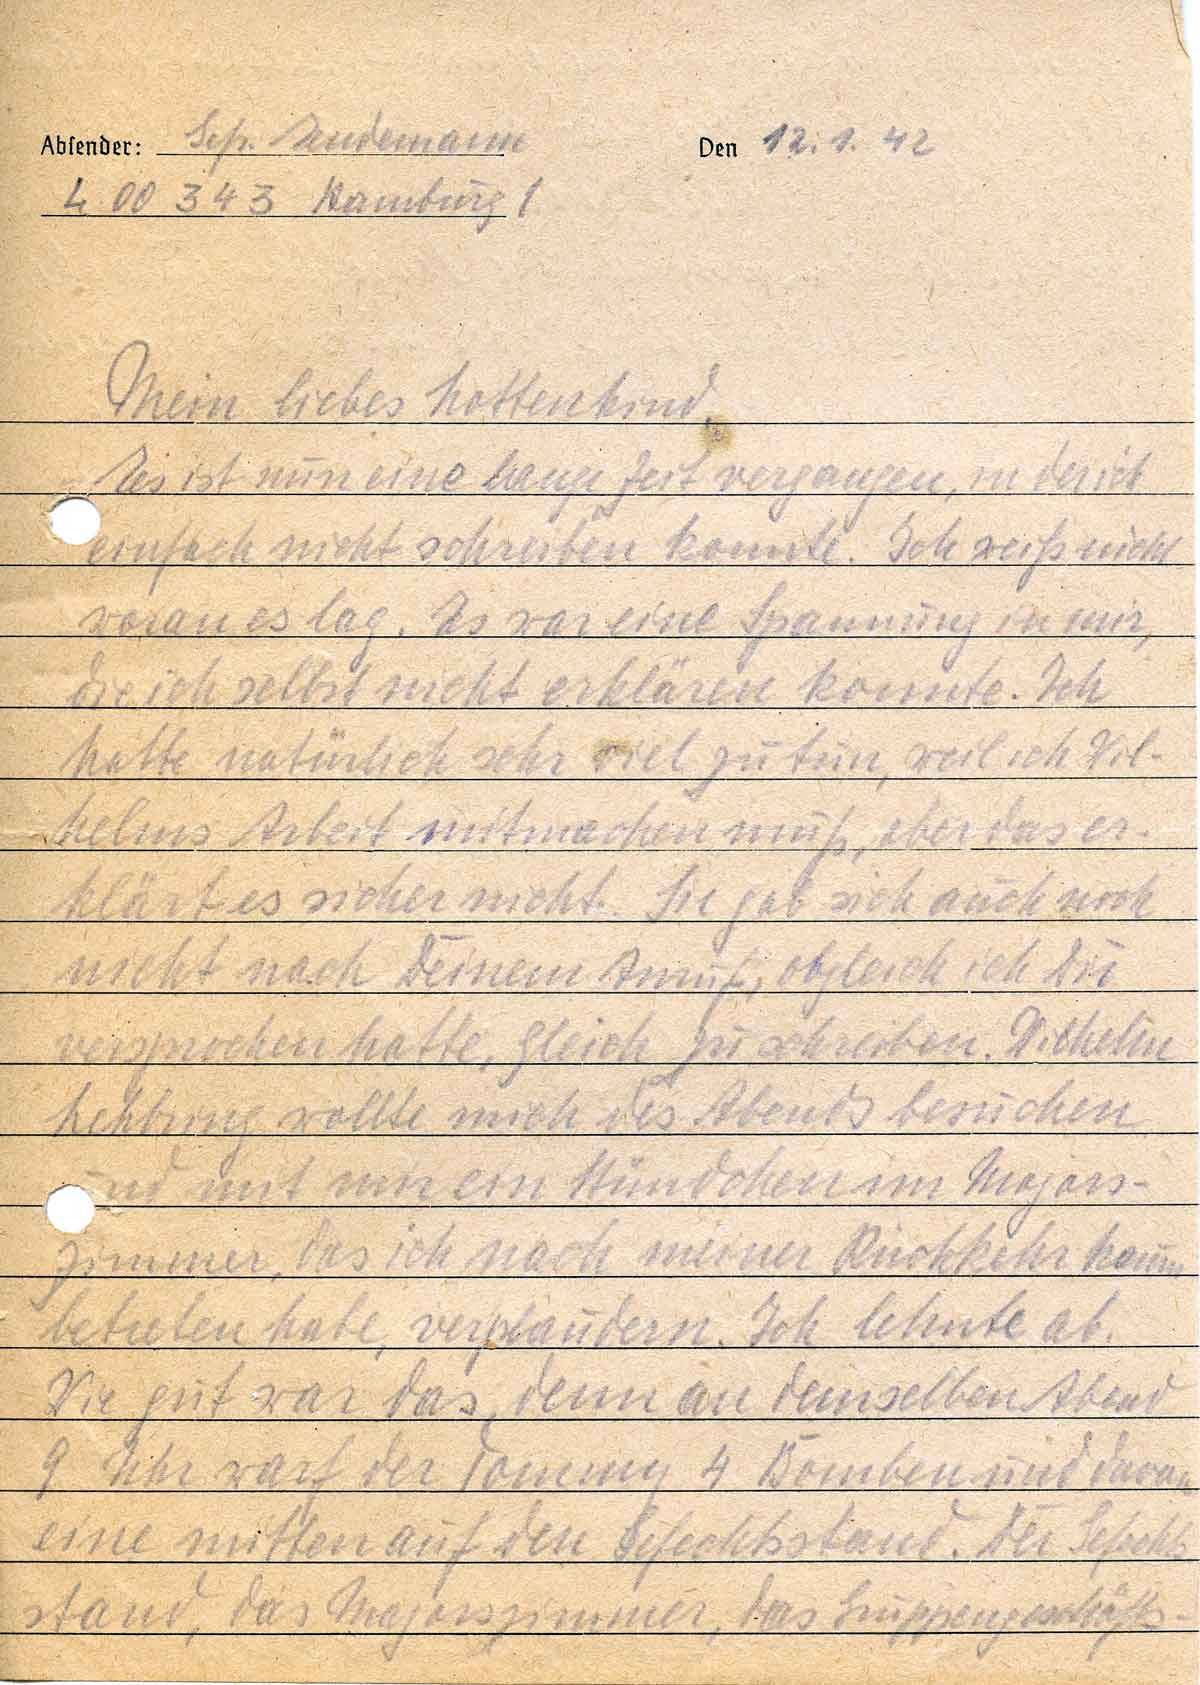 Absender: Gefr. Lindemann Den 12.1.42
L 00 343 Hamburg 1
Mein liebes Lottenkind,
Es ist nun eine lange Zeit vergangen, in der ich
einfach nicht schreiben konnte. Ich weiß nicht
woran es lag. Es war eine Spannung in mir,
die ich selbst nicht erklären konnte. Ich
hatte natürlich sehr viel zu tun, weil ich Wil-
helms Arbeit mitmachen muß, aber das er-
klärt es sicher nicht. Sie gab sich auch noch
nicht nach Deinem Anruf, obgleich ich Dir
versprochen hatte, gleich zu schreiben. Wilhelm
wollte mich des Abends besuchen
und mit mir ein Stündchen im Majors-
zimmer, das ich nach meiner Rückkehr kaum
betreten habe, verplaudern. Ich lehnte ab.
Wie gut war das, denn an demselben Abend
9 Uhr warf der Tommy 4 Bomben und davon
eine mitten auf den Gefechtsstand. Der Gefechts
stand, das Majorszimmer, das Gruppengeschäfts-